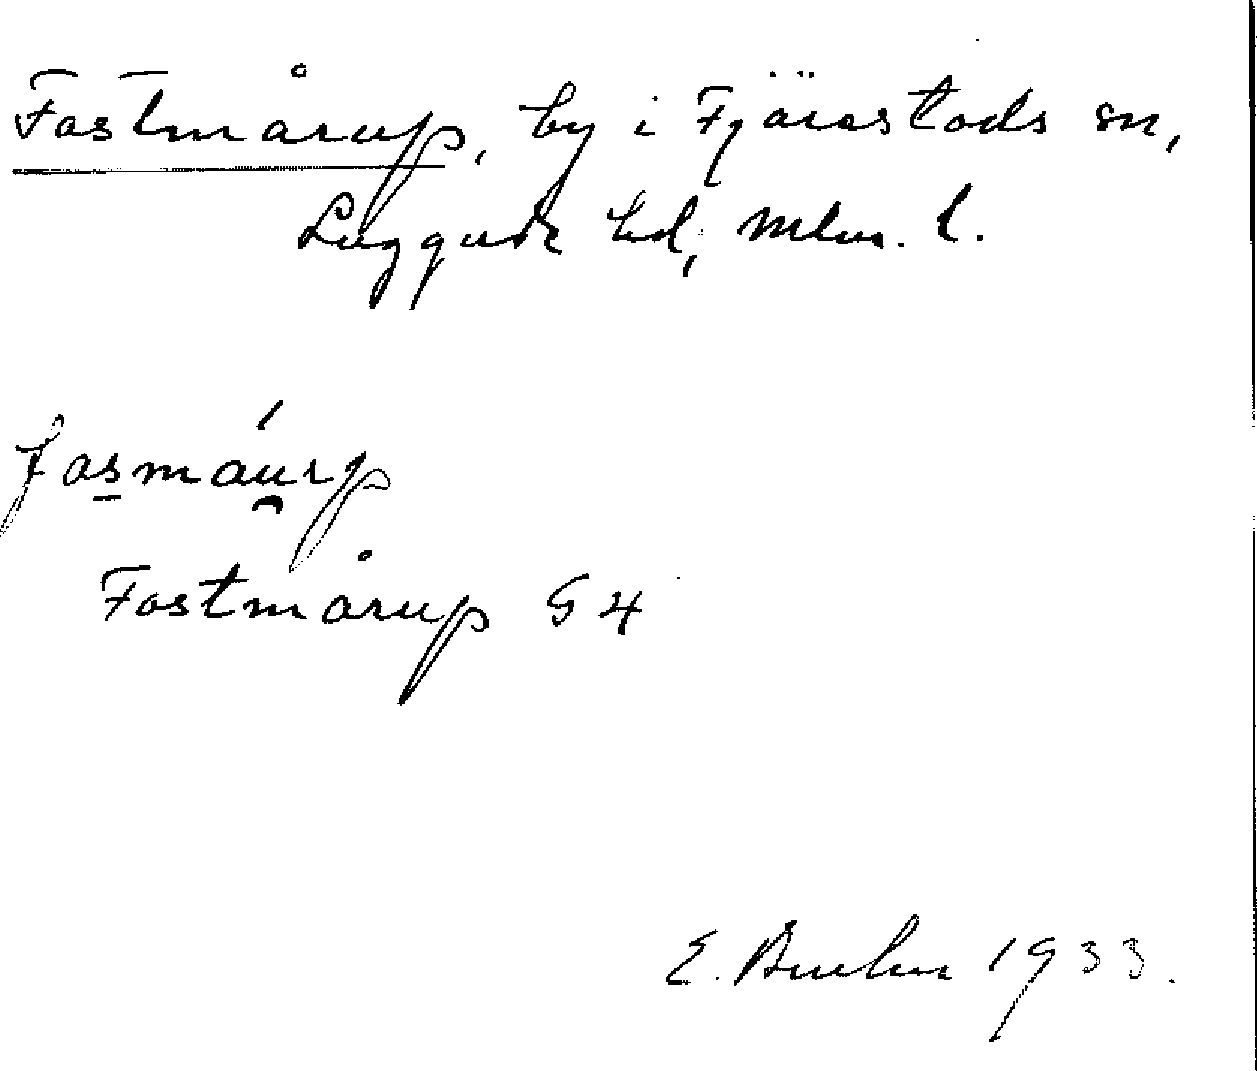 Fastmårup, by i Fjärestads sn,
Luggude hd, Mlm. l.
fasmáu̯rp
Fastmårup G 4
E. 1933.